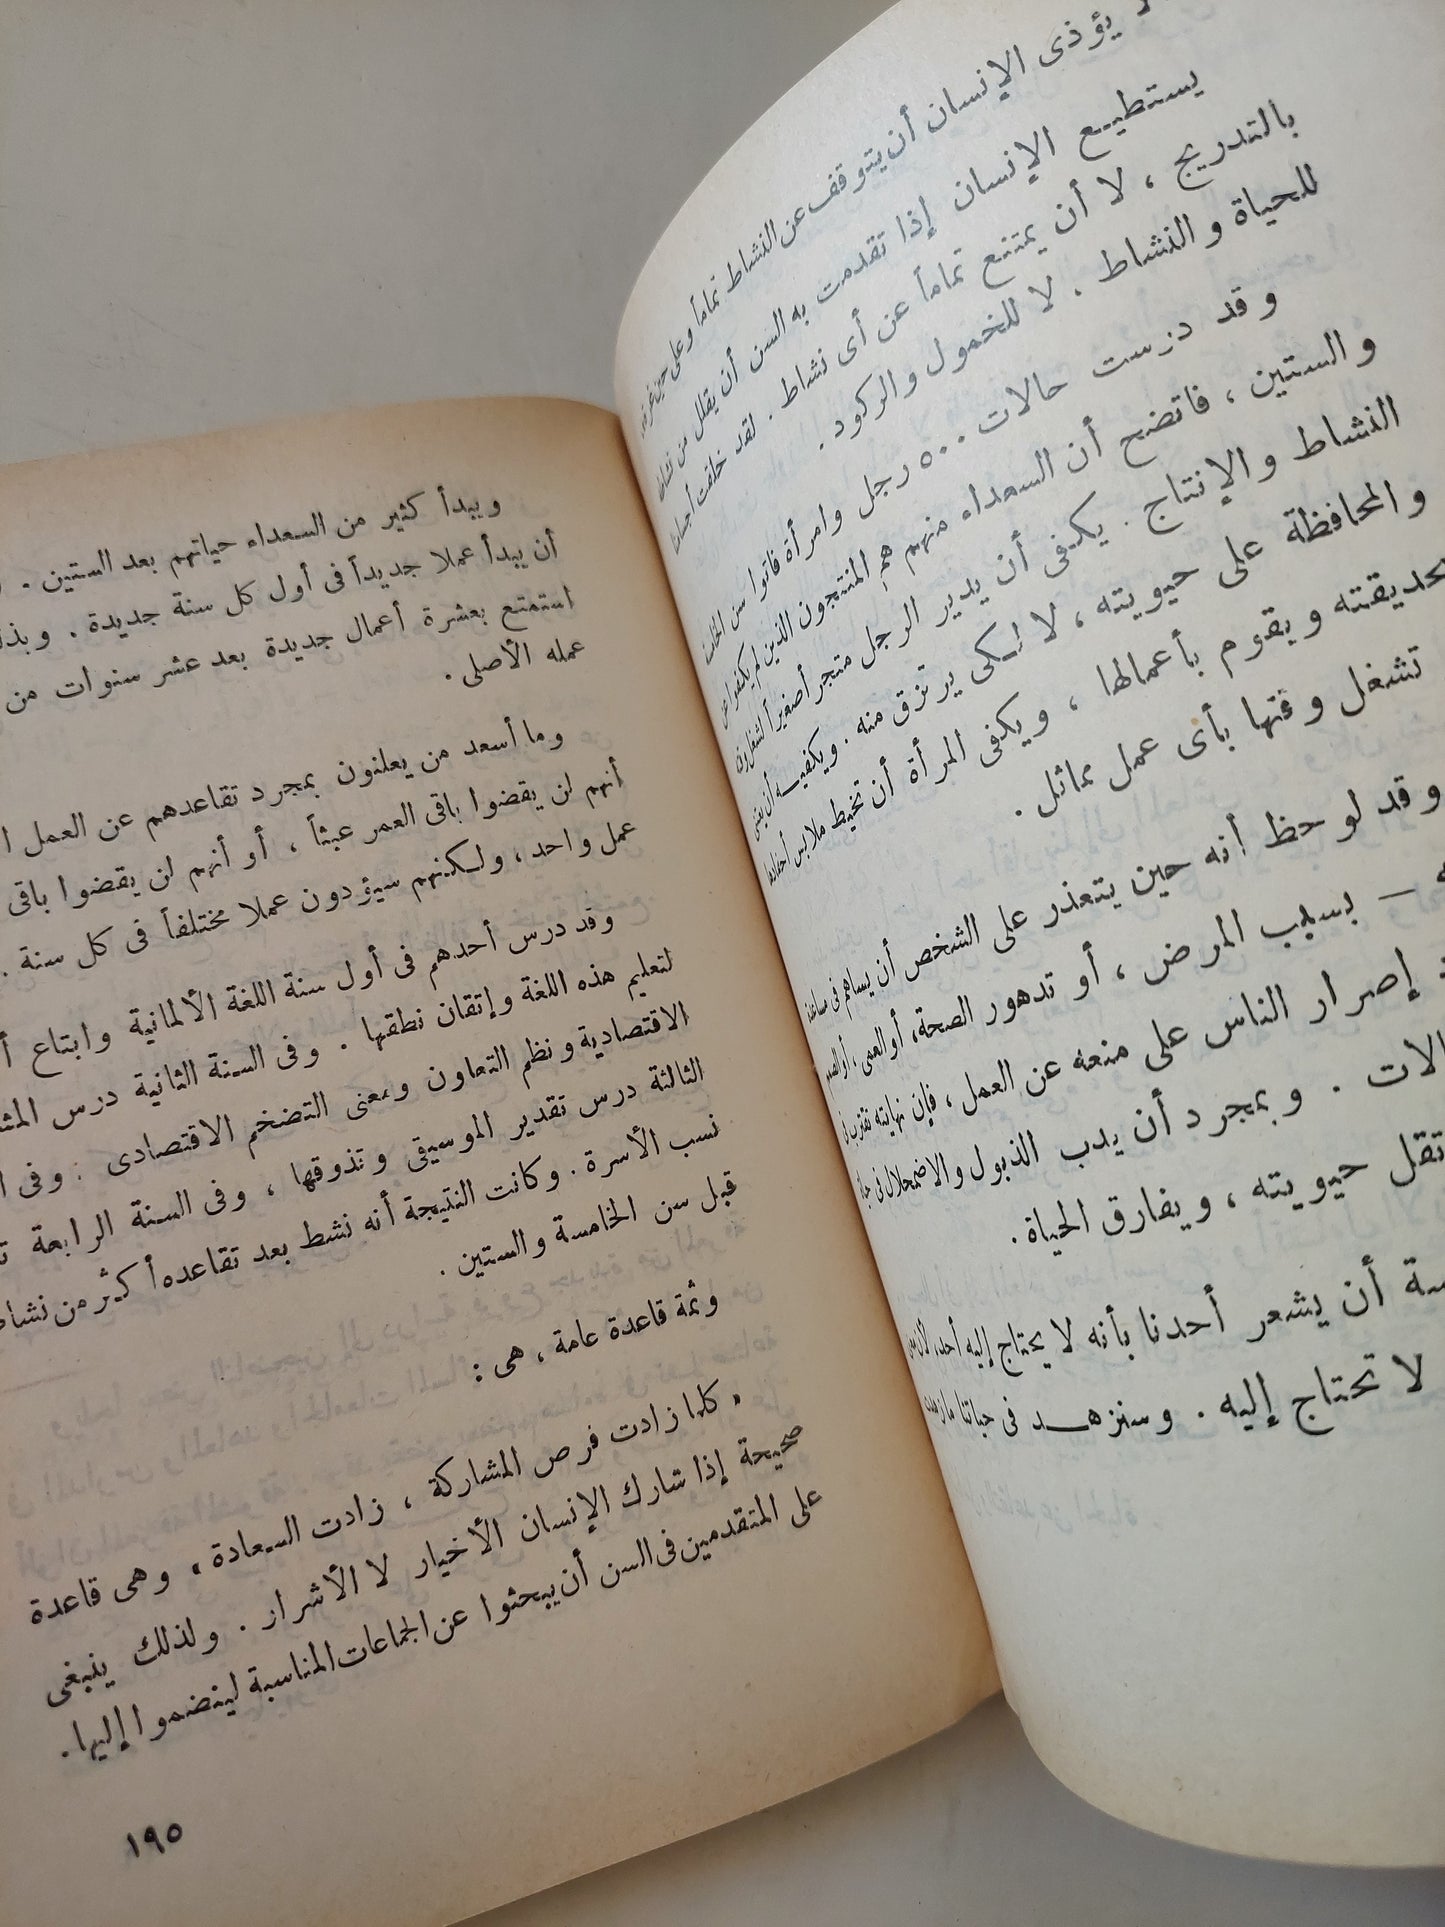 يؤذى الإنسان أن يتوقف عن النشاط تماماً وعلى حين غرة
يستطيع الإنسان إذا تقدمت به السن أن يقلل من نشاطه
بالتدريج ، لا أن يمتنع تماماً عن أى نشاط . لقد خلقت أجسامنا
للحياة والنشاط . لا للخمول والركود .
وقد درست حالات ٥٠٠ رجل وامرأة فاتوا سن الخامسة
والستين ، فاتضح أن السعداء منهم هم المنتجون الذين لم يكفوا عن
النشاط والإنتاج . يكفى أن يدير الرجل متجراً صغيراً لشغل وقته
والمحافظة على حيويته ، لا لكى يرتزق منه . ويكفيه أن يعتنى
بحديقته ويقوم بأعمالها ، ويكفى المرأة أن تخيط ملابس أحفادها
تشغل وقتها بأى عمل مماثل .
وقد لوحظ أنه حين يتعذر على الشخص أن يساهم فى
– بسبب المرض ، أو تدهور الصحة ، أو العمى ، أو الصمم
إصرار الناس على منعه عن العمل ، فإن نهايته تقترب فى
الات . وبمجرد أن يدب الذبول والاضمحلال فى
تقل حيويته ، ويفارق الحياة .
أن يشعر أحدنا بأنه لا يحتاج إليه أحد ، لأن
لا تحتاج إليه . وسنزهد فى حياتنا
ويبدأ كثير من السعداء حياتهم بعد الستين .
أن يبدأ عملا جديداً فى أول كل سنة جديدة . وبذلك
استمتع بعشرة أعمال جديدة بعد عشر سنوات من
عمله الأصلى .
وما أسعد من يعلنون بمجرد تقاعدهم عن العمل
أنهم لن يقضوا باقى العمر عبثاً ، أو أنهم لن يقضوا باقى
عمل واحد ، ولكنهم سيؤدون عملا مختلفاً فى كل سنة .
وقد درس أحدهم فى أول سنة اللغة الألمانية وابتاع
لتعليم هذه اللغة وإتقان نطقها . وفى السنة الثانية درس
الاقتصادية ونظم التعاون ومعنى التضخم الاقتصادى . وفى
الثالثة درس تقدير الموسيقى وتذوقها ، وفى السنة الرابعة
نسب الأسرة . وكانت النتيجة أنه نشط بعد تقاعده أكثر من
قبل سن الخامسة والستين .
وثمة قاعدة عامة ، هى :
« كلما زادت فرص المشاركة ، زادت السعادة » وهى قاعدة
صحيحة إذا شارك الإنسان الأخيار لا الأشرار . ولذلك ينبغى
على المتقدمين فى السن أن يبحثوا عن الجماعات المناسبة لينضموا إليها .
١٩٥